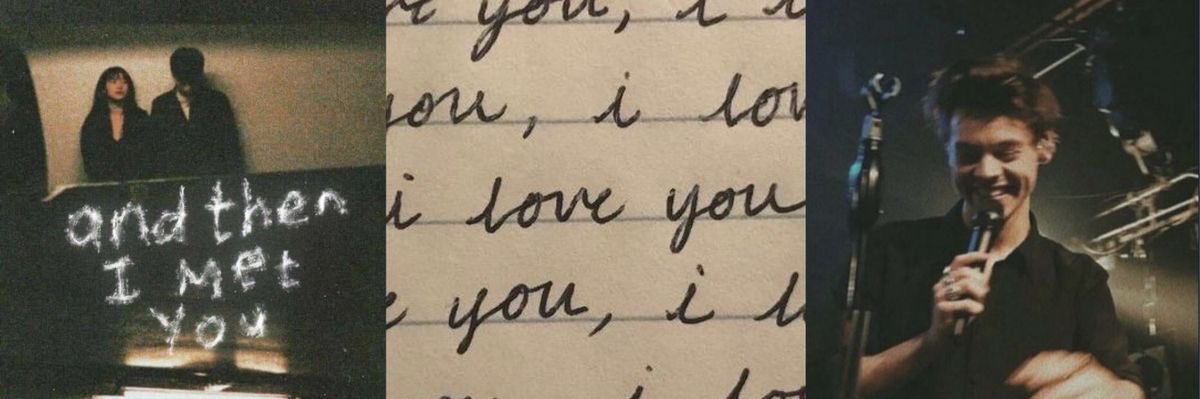 and then
I Met
You
e you, i
you, i lov
i love you
e you, i l
you, i lo